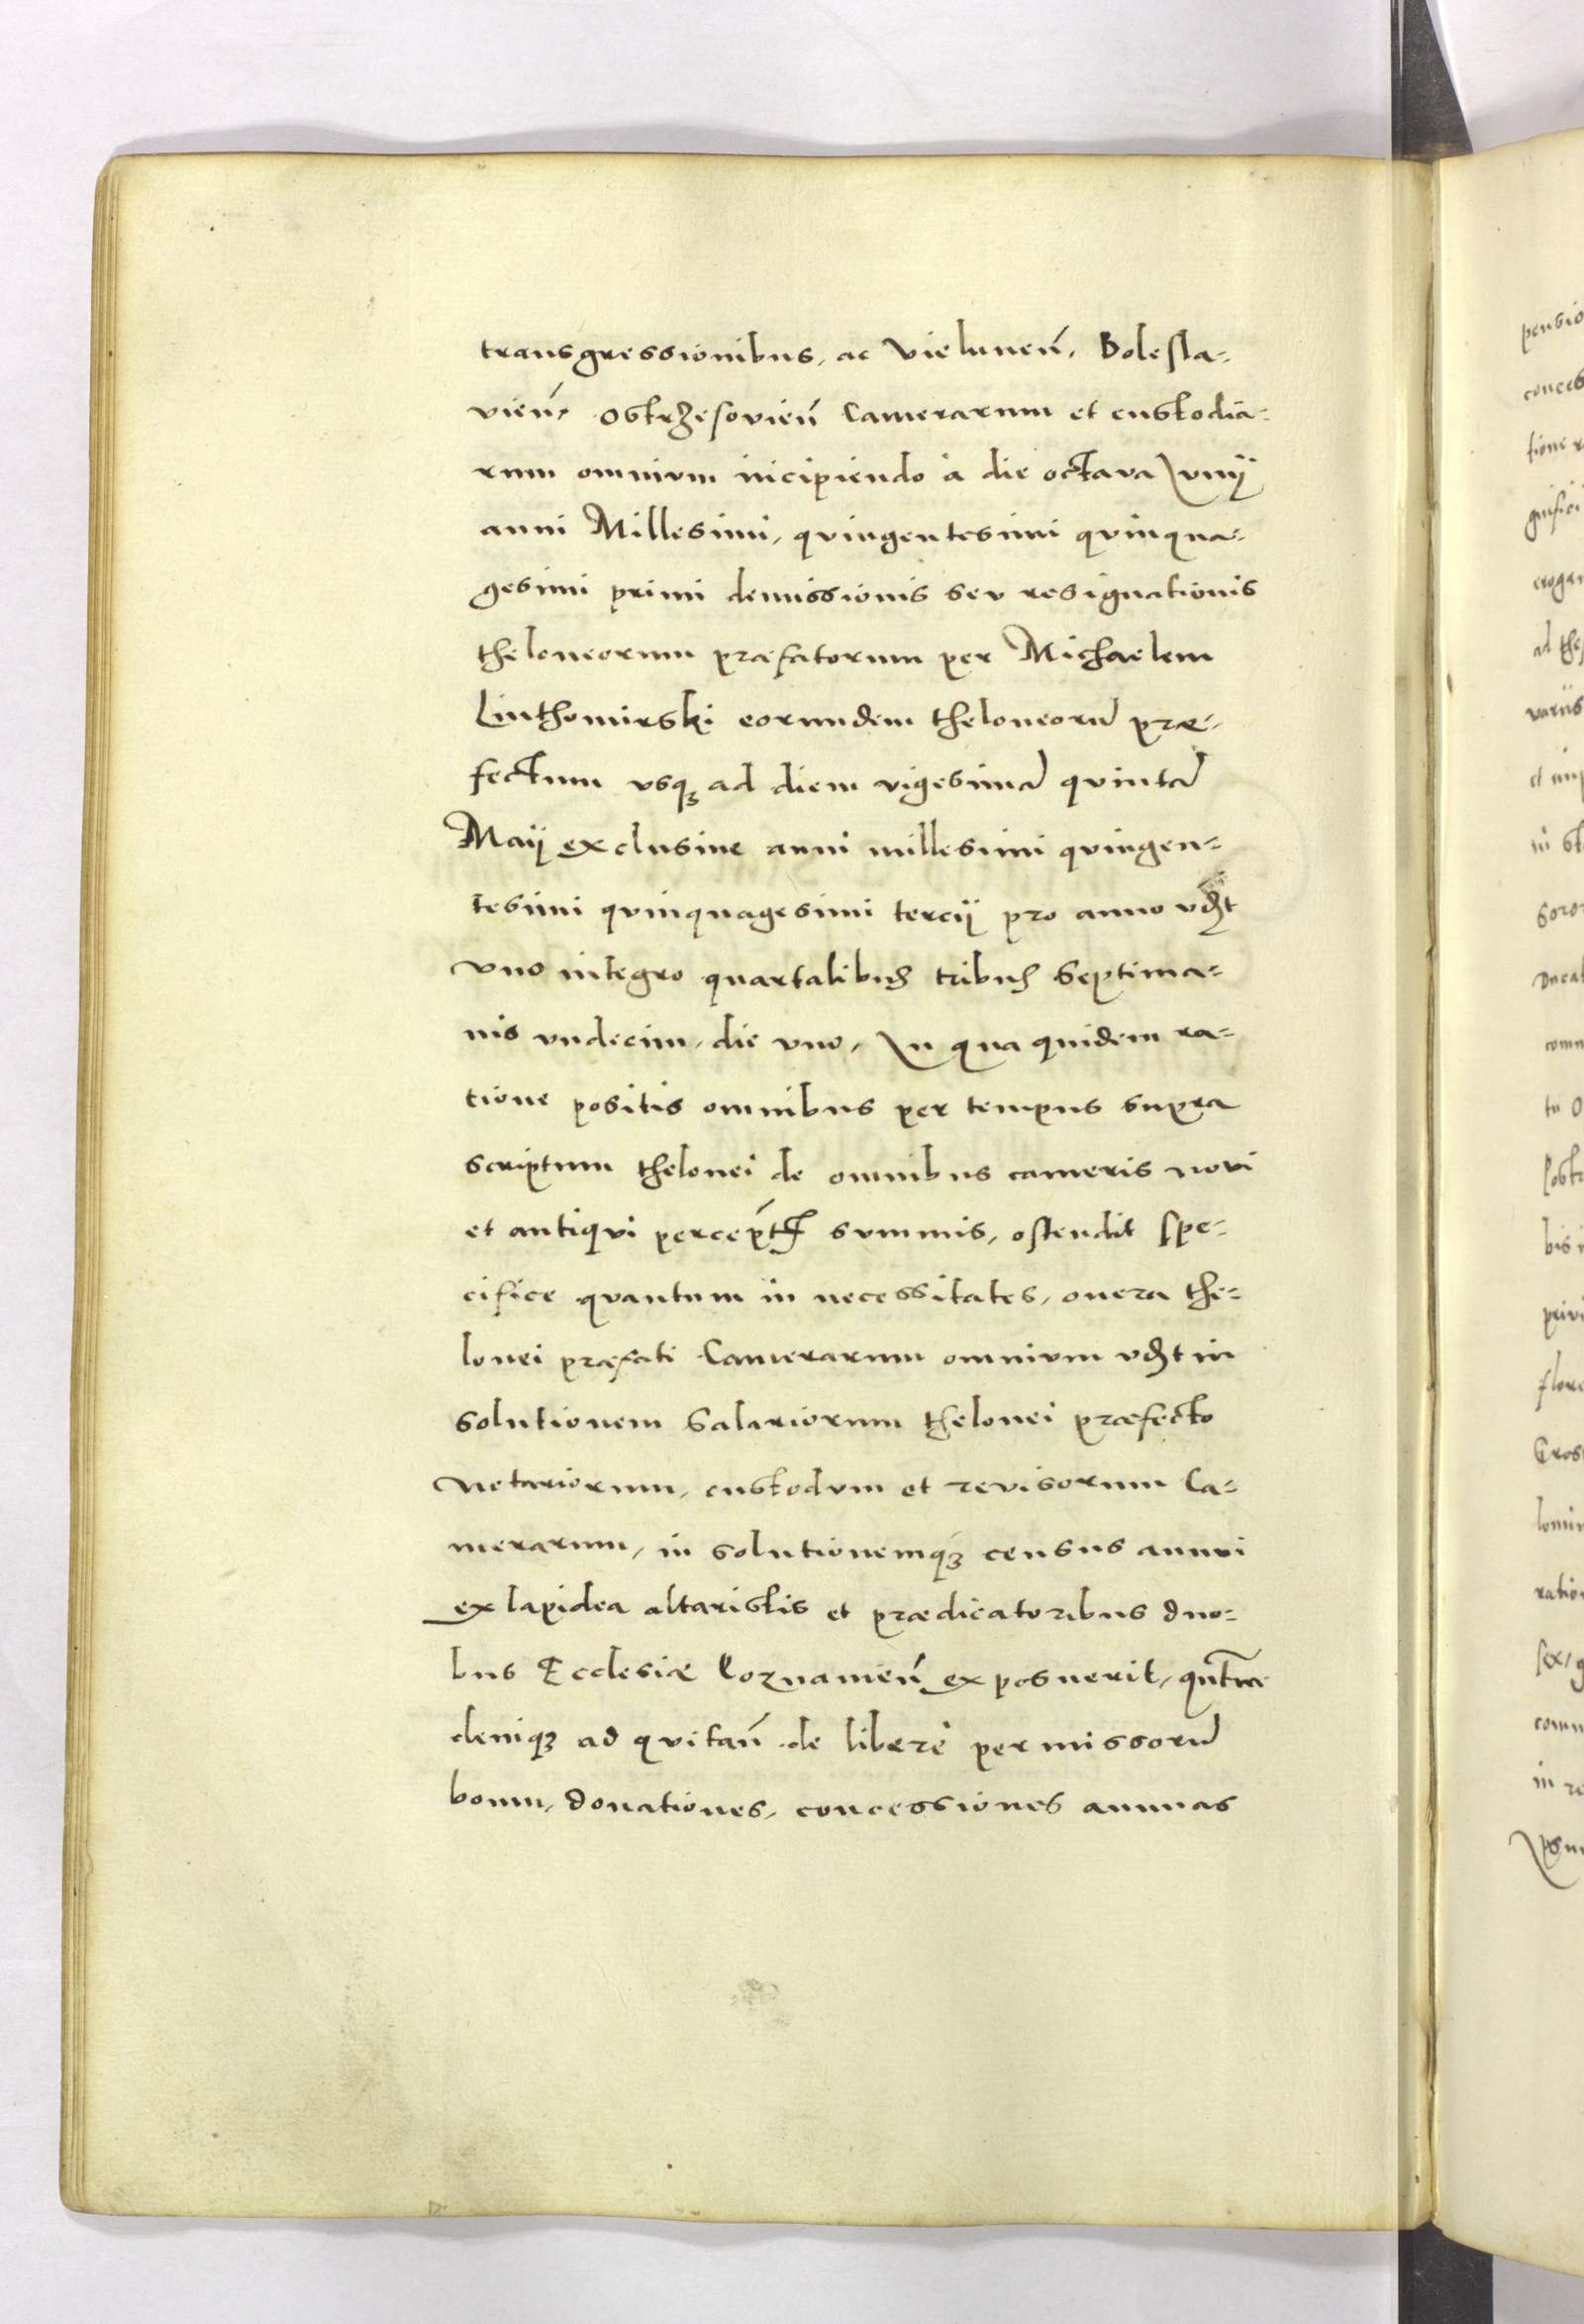 transgressionibus, ac Vielunen̄, Bolesla-
vien̄, Ostrzesovien̄ Camerarum et custodia-
rum omnium incipiendo à die octava Junij
anni Millesimi, quingentesimi quinqua-
gesimi primi demissionis seu resignationis
theloneorum præfatorum per Michaelem
Linthomirski eorundem theloneorū præ-
fectum usq3 ad diem vigesimā quintā
Maij exclusiue anni millesimi quingen-
tesimi quinquagesimi tercij pro anno vdꝫt
vno integro quartalibus tribus Septima-
nis vndecim, die vno, In qua quidem ra-
tione positis omnibus per tempus supra
scriptum thelonei de omnibus cameris novi
et antiqui percept̄ summis, ostendit spe-
cifice quantum in necessitates, onera the-
lonei præfati Camerarum omnium vdꝫt in
solutionem Salariorum thelonei præfecto
Notariorum, custodum et revisorum Ca-
merarum, in solutionemq3 census annui
ex lapidea altaristis et prædicatoribus duo-
bus Ecclesiæ Poznanien̄ exposuerit,
deniq3 ad quitan̄ de liberè permissorū
boum, donationes, concessiones annuas
pensio
conces
tione
ad the
variis
et imp
comm
bis
privi
flore
Gros
ratio
sex,
comm
in re